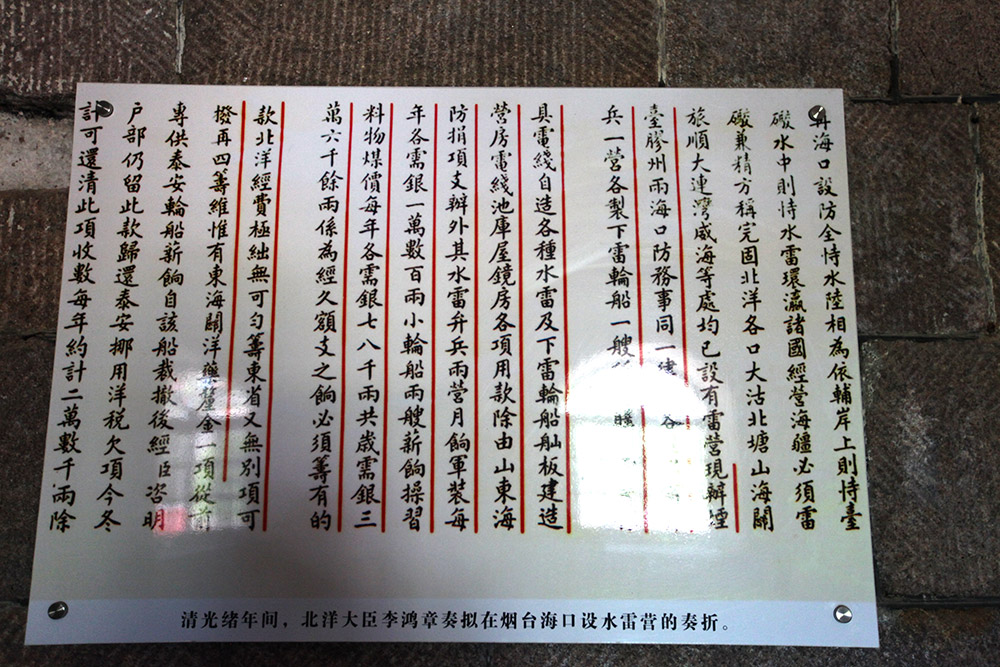 再海口設防全恃水陸相為依輔岸上則恃臺
礮水中則恃水雷環瀛諸國經營海疆必須雷
礮兼精方稱完固北洋各口大沽北塘山海關
旅順大連灣威海等處均已設有雷營現辦煙
臺膠州兩海口防務事同一律
兵一營各製下雷輪船一艘
具電綫自造各種水雷及下雷輪船舢板建造
營房電綫池庫屋鏡房各項用款除由山東海
防捐項支辦外其水雷弁兵兩營月餉軍裝每
年各需銀一萬數百兩小輪船兩艘薪餉操習
料物煤價每年各需銀七八千兩共歲需銀三
萬六千餘兩係為經久額支之餉必須籌有的
款北洋經費極絀無可勻籌東省又無別項可
撥再四籌維惟有東海關洋藥釐金一項從前
專供泰安輪船薪餉自該船裁撤後經臣咨明
戶部仍留此款歸還泰安挪用洋稅欠項今冬
計可還清此項收數每年約計二萬數千兩除
清光绪年间，北洋大臣李鸿章奏拟在烟台海口设水雷营的奏折。